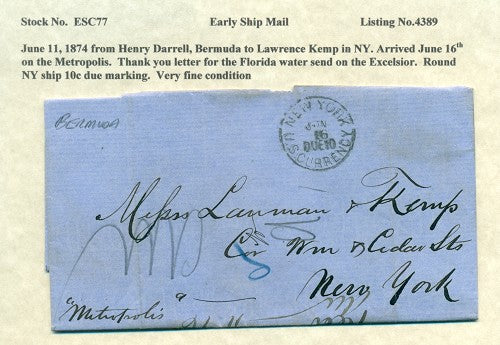 Stock No.  ESC77 Early Ship Mail Listing No.4389
June 11, 1874 from Henry Darrell, Bermuda to Lawrence Kemp in NY.  Arrived June 16th
on the Metropolis.  Thank you letter for the Florida water send on the Excelsior.  Round
NY ship 10c due marking.  Very fine condition
BERMUDA
NEW YORK
JUN
16
DUE 10
U.S. CURRENCY
Messrs Lanman & Kemp
Cor Wm & Cedar Sts
New York
"Metropolis"